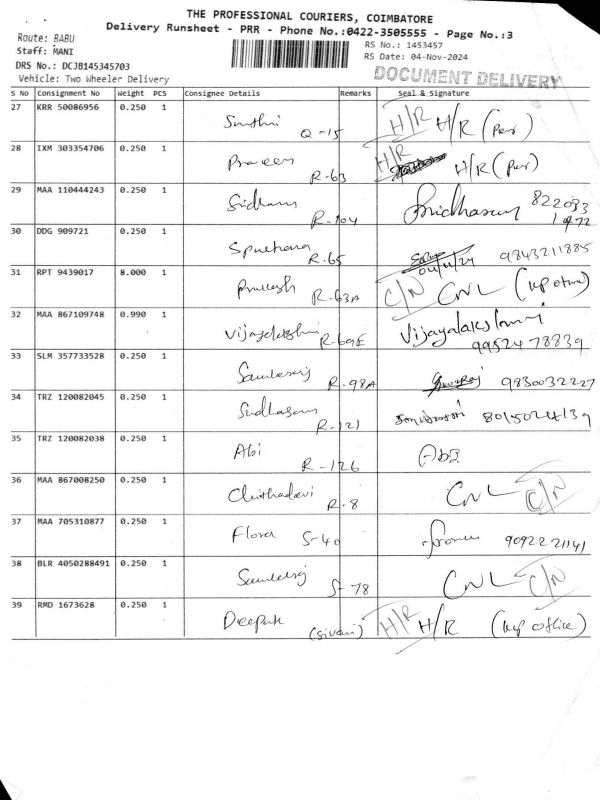 THE PROFESSIONAL COURIERS, COIMBATORE
Delivery Runsheet - PRR - Phone No.:0422-3505555 - Page No.:3
Route: BABU
Staff: MANI
DRS No.: DCJB145345703
Vehicle: Two Wheeler Delivery
RS No.: 1453457
RS Date: 04-Nov-2024
DOCUMENT DELIVERY
S No Consignment No Weight PCS Consignee Details Remarks Seal & Signature
27 KRR 50086956 0.250 1 Q-15 H/R H/R
28 IXM 303354706 0.250 1 Praveen R-63 H/R H/R
29 MAA 110444243 0.250 1 R-104
30 DDG 909721 0.250 1 R-65 04/11/24 9843211885
31 RPT 9439017 8.000 1 Prakash R-63A C/N CNL
32 MAA 867109748 0.990 1 R-69E 99524 78839
33 SLM 357733528 0.250 1 R-98A 9830032227
34 TRZ 120082045 0.250 1 R-121 8015024139
35 TRZ 120082038 0.250 1 Abi R-126
36 MAA 867008250 0.250 1 R-8 CNL C/N
37 MAA 705310877 0.250 1 Flora S-40 9092221141
38 BLR 4050288491 0.250 1 S-78 CNL C/N
39 RMD 1673628 0.250 1 Deepak H/R H/R